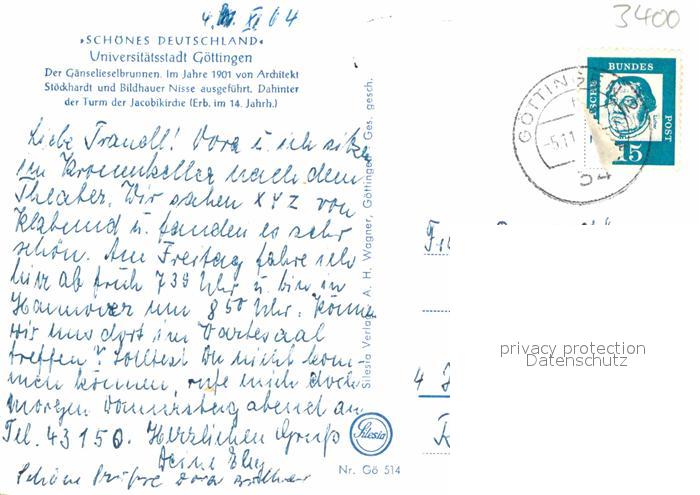 3400
4. XI 64
»SCHÖNES DEUTSCHLAND«
Universitätsstadt Göttingen
Der Gänselieselbrunnen. Im Jahre 1901 von Architekt
Stöckhardt und Bildhauer Nisse ausgeführt. Dahinter
der Turm der Jacobikirche (Erb. im 14. Jahrh.)
Liebe Traudl! Dora u. ich sitzen
im Kronenkeller nach dem
Theater. Wir sahen XYZ von
Klabund u. fanden es sehr
schön. Am Freitag fahre ich
hier ab früh 7 39 Uhr u. bin in
Hannover um 8 50 Uhr. Können
wir uns dort im Wartesaal
treffen? Solltest Du nicht kom-
men können, rufe mich doch
morgen Donnerstag abend an
Tel. 43150. Herzlichen Gruß
Deine
Schöne Grüße Dora
Silesia Verlag A. H. Wagner, Göttingen Ges. gesch.
Silesia
Nr. Gö 514
BUNDES
POST
15
GÖTTIN
-5.11
34
4
privacy protection
Datenschutz